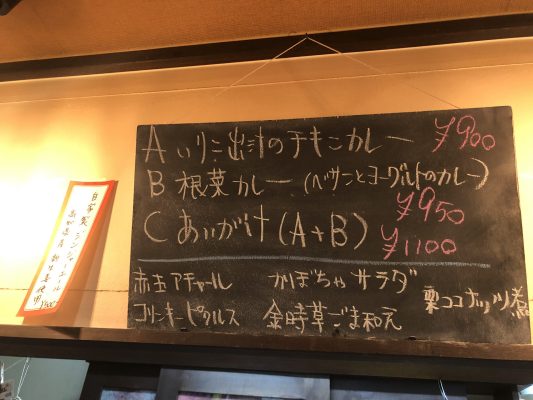 A いりこ出汁のチキンカレー ¥900
B 根菜カレー (ベサンとヨーグルトのカレー)
¥950
C あいがけ(A+B) ¥1100
赤玉アチャール かぼちゃサラダ
コリンキーピクルス 金時草ごま和え
栗ココナッツ煮
自家製ジンジャーエール
高知県産新生姜使用
¥500